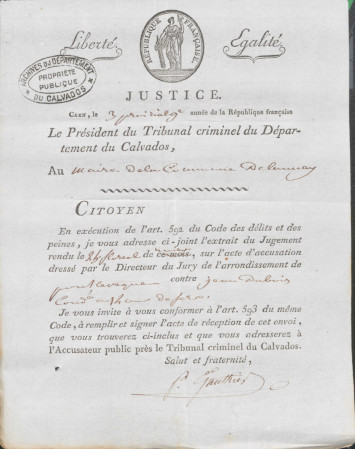 Liberté. Egalité.
RÉPUBLIQUE FRANÇAISE.
ARCHIVES DU DÉPARTEMENT
PROPRIÉTÉ
PUBLIQUE
DU CALVADOS
JUSTICE.
CAEN, le 3 prairial 9e année de la République française
Le Président du Tribunal criminel du Dépar-
tement du Calvados,
Au maire de la Commune de
CITOYEN
En exécution de l'art. 592 du Code des délits et des
peines, je vous adresse ci-joint l'extrait du Jugement
rendu le 24 floreal de ce mois, sur l'acte d'accusation
dressé par le Directeur du Jury de l'arrondissement de
contre jean
de fers.
Je vous invite à vous conformer à l'art. 593 du même
Code, à remplir et signer l'acte de réception de cet envoi,
que vous trouverez ci-inclus et que vous adresserez à
l'Accusateur public près le Tribunal criminel du Calvados.
Salut et fraternité,